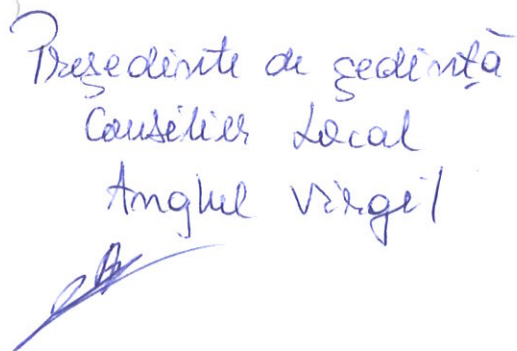 Președinte de ședință
Consilier Local
Anghel Virgil